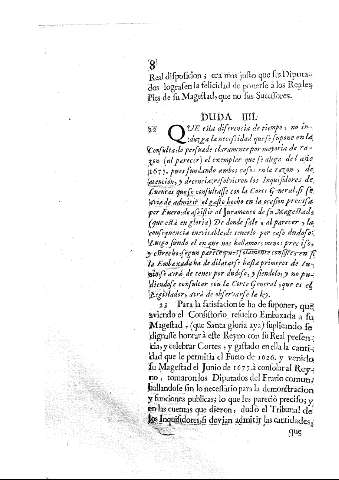 8
Real disposicion; era mas justo que sus Diputa-
dos lograsen la felicidad de ponerse à los Reales
Pies de su Magestad, que no sus Sucessores.
DUDA IIII.
22 QUE esta diferencia de tiempo, no in-
duzga la necessidad que se supone en la
Consulta: lo persuade claramente por mayoria de ra-
zon (al parecer) el exemplar que se alega del año
1677. pues fundando ambos casos en la razon, y de
atencion, y decencia; resolvieron los Inquisidores de
Cuentas que se consultasse con la Corte General si se
avia de admitir el gasto hecho en la ocasion precisa
por Fuero, de assistir al Juramento de su Magestad,
(que està en gloria) De donde sale al parecer, y la
consequencia inevitable de tenerlo por caso dudoso:
Luego siendo el en que nos hallamos menos preciso,
y estrecho, segun parece que
la Embaxada ha de dilatarse hasta primeros de Ju-
nio se avrà de tener por dudoso, y siendolo; y no pu-
diendose consultar con la Corte General, que es el
Legislador, avrà de observarse la ley.
23 Para la satisfacion se ha de suponer, que
aviendo el Consistorio resuelto Embaxada à su
Magestad, (que Santa gloria aya) suplicando se
dignasse honrar à este Reyno con su Real presen-
cia, y celebrar Cortes, y gastado en ella la canti-
dad que le permitia el Fuero de 1626. y venido
su Magestad el Junio de 1677. à consolar al Rey-
no, tomaron los Diputados del Erario comun,
hallandose sin lo necessario para la demonstracion
y funciones publicas; lo que les pareciò preciso; y
en las cuentas que dieron, dudò el Tribunal de
los Inquisidores, si devian admitir las cantidades,
que